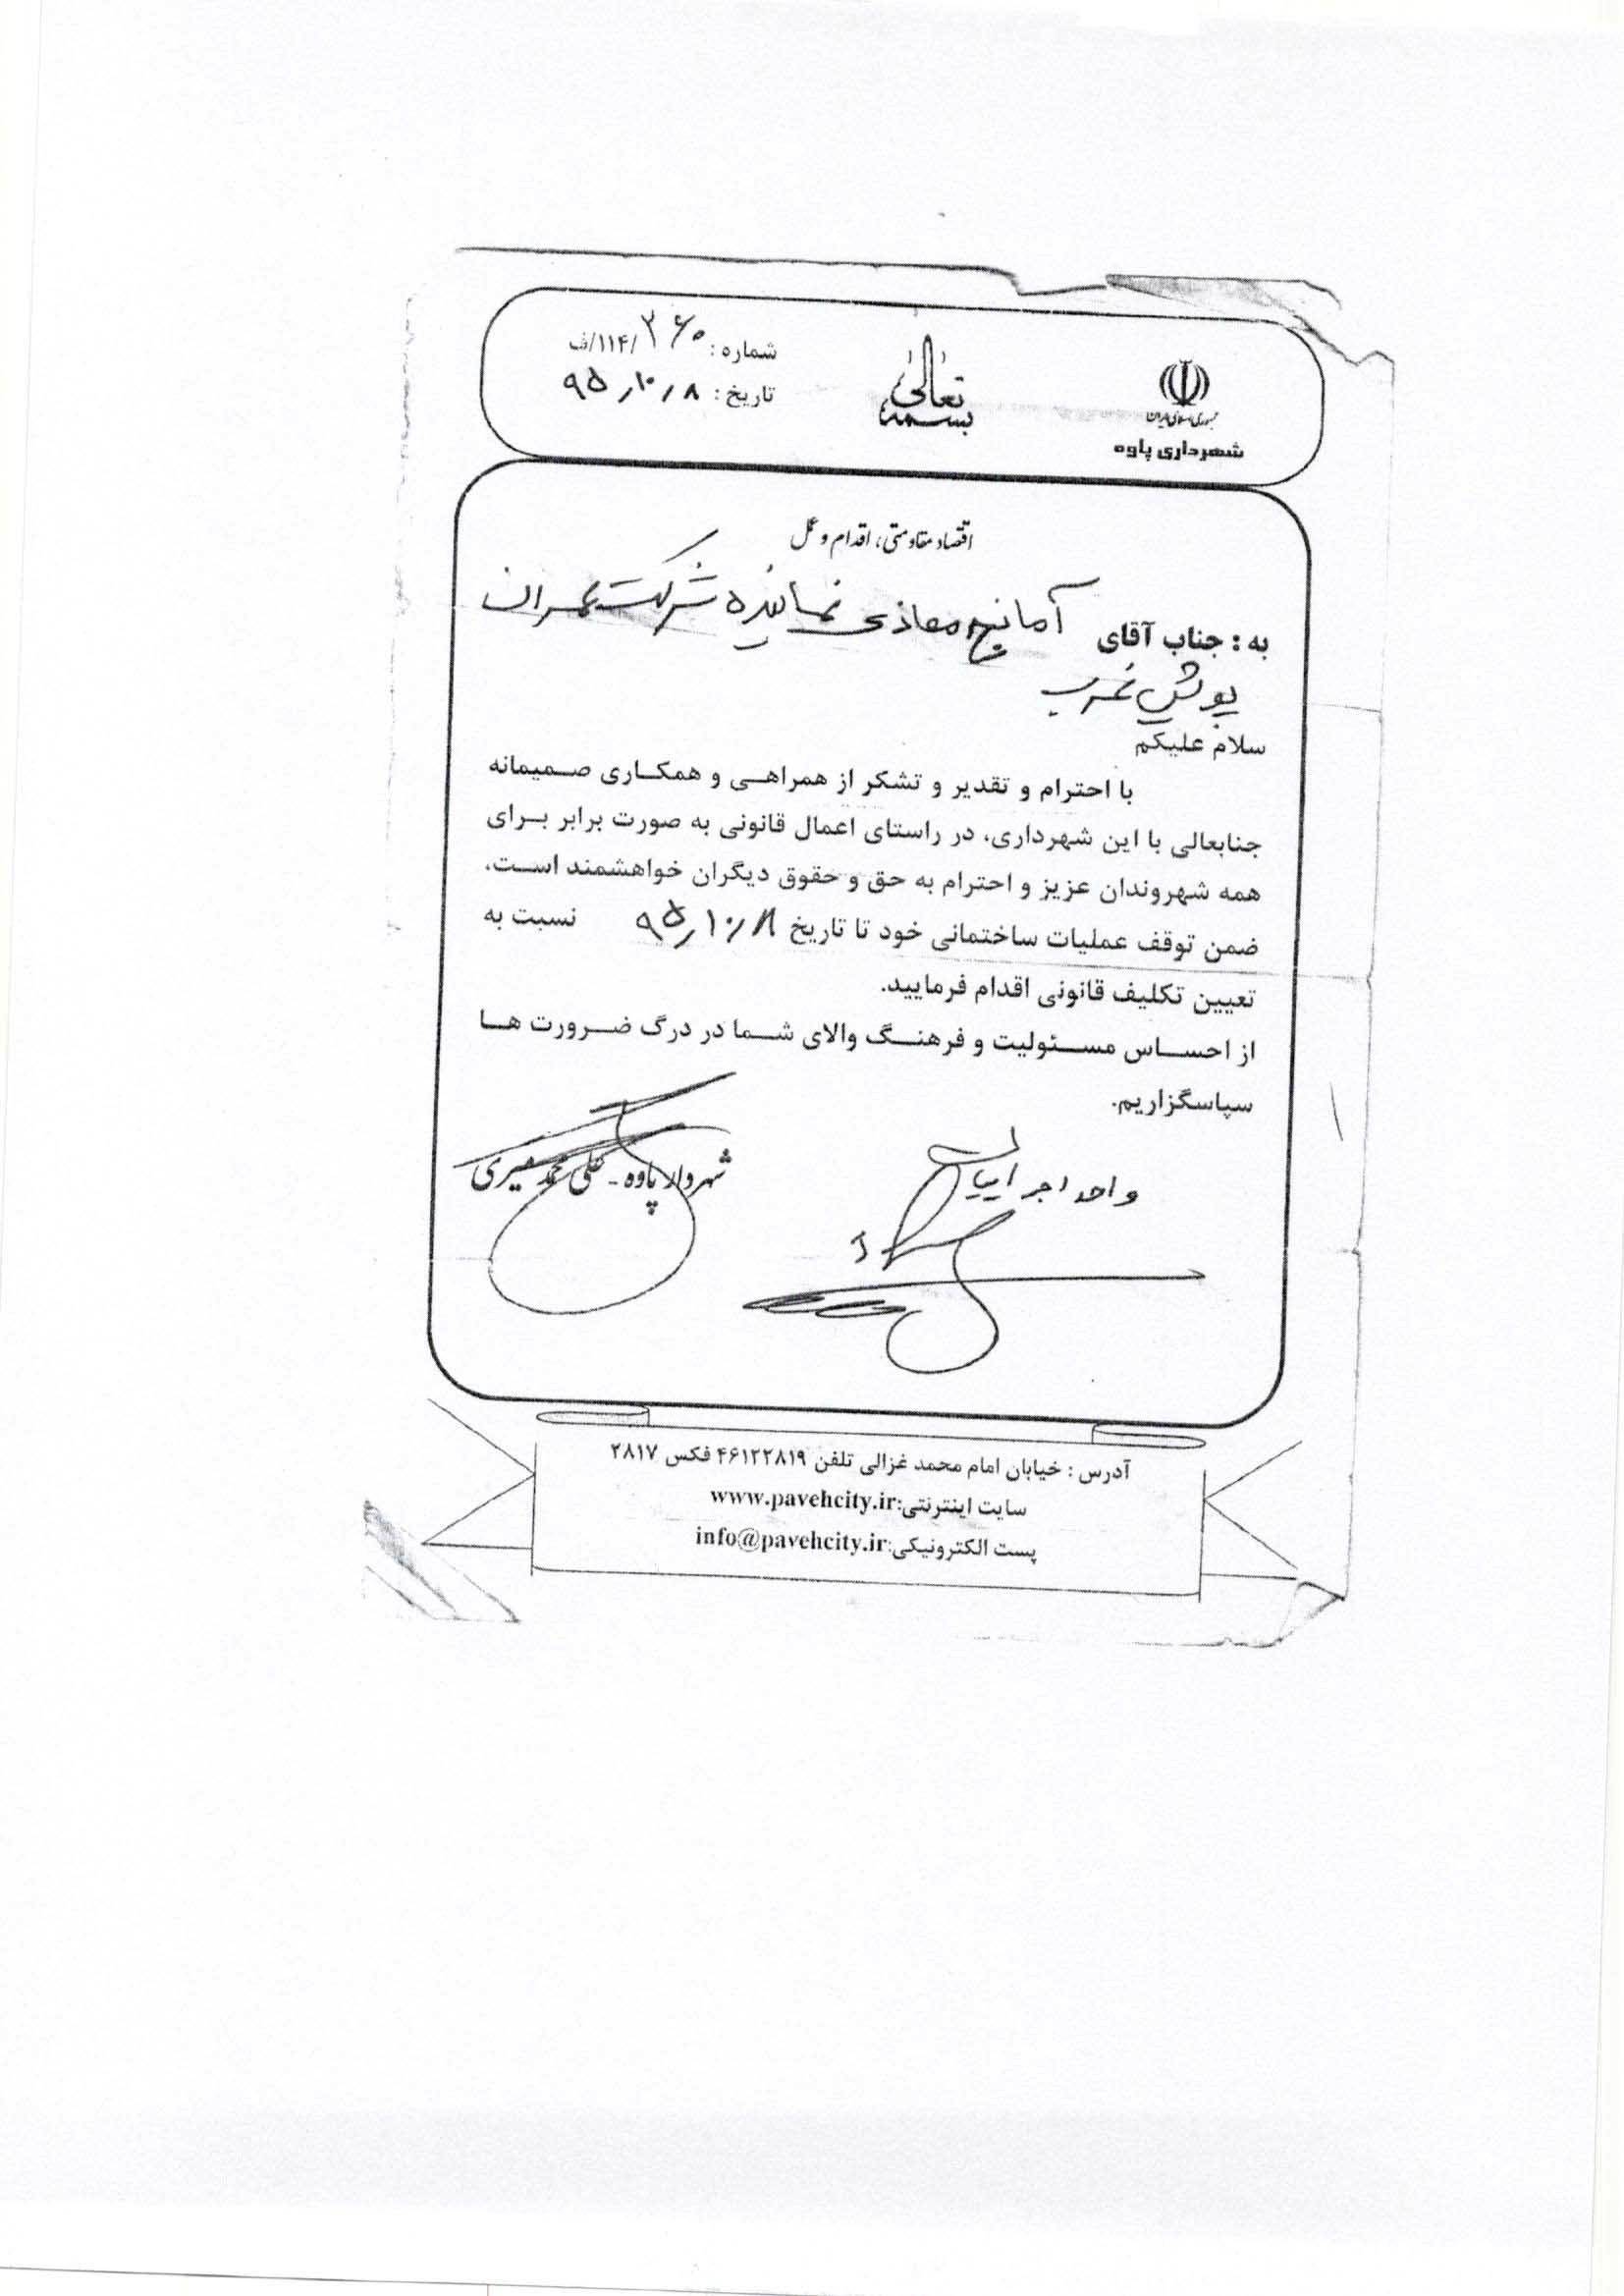 جمهوری اسلامی ایران
شهرداری پاوه
بسمه تعالی
شماره: ۳۶۰/۱۱۴/ف
تاریخ: ۹۵/۱۰/۸
اقتصاد مقاومتی، اقدام و عمل
به: جناب آقای آمانج معاذی نماینده شرکت عمران
پوشش غرب
سلام علیکم
با احترام و تقدیر و تشکر از همراهی و همکاری صمیمانه
جنابعالی با این شهرداری، در راستای اعمال قانونی به صورت برابر برای
همه شهروندان عزیز و احترام به حق و حقوق دیگران خواهشمند است،
ضمن توقف عملیات ساختمانی خود تا تاریخ ۹۵/۱۰/۸ نسبت به
تعیین تکلیف قانونی اقدام فرمایید.
از احساس مسئولیت و فرهنگ والای شما در درگ ضرورت ها
سپاسگزاریم.
واحد اجراییات
شهردار پاوه - علی محمد
آدرس: خیابان امام محمد غزالی تلفن ۴۶۱۲۲۸۱۹ فکس ۲۸۱۷
سایت اینترنتی:www.pavehcity.ir
پست الکترونیکی:info@pavehcity.ir